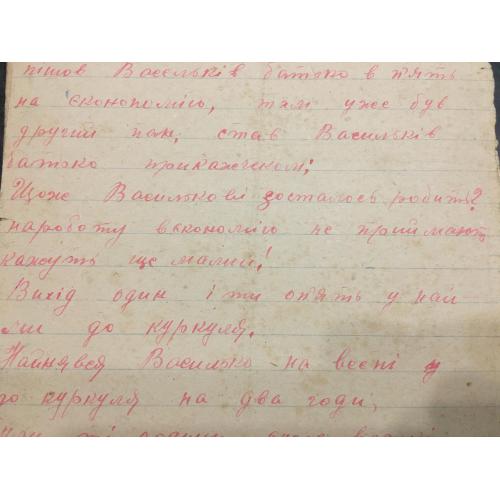 пішов Васильків батько в п'ять
на єкономлію, там уже був
другий пан, став Васильків
батько прикажчиком;
Щоже Василькові зосталось робить?
нароботу векономлію не приймають
кажуть ще малий!
Вихід один іти оп'ять у най-
ми до куркуля.
Найнявся Василько на весні
до куркуля на два годи,